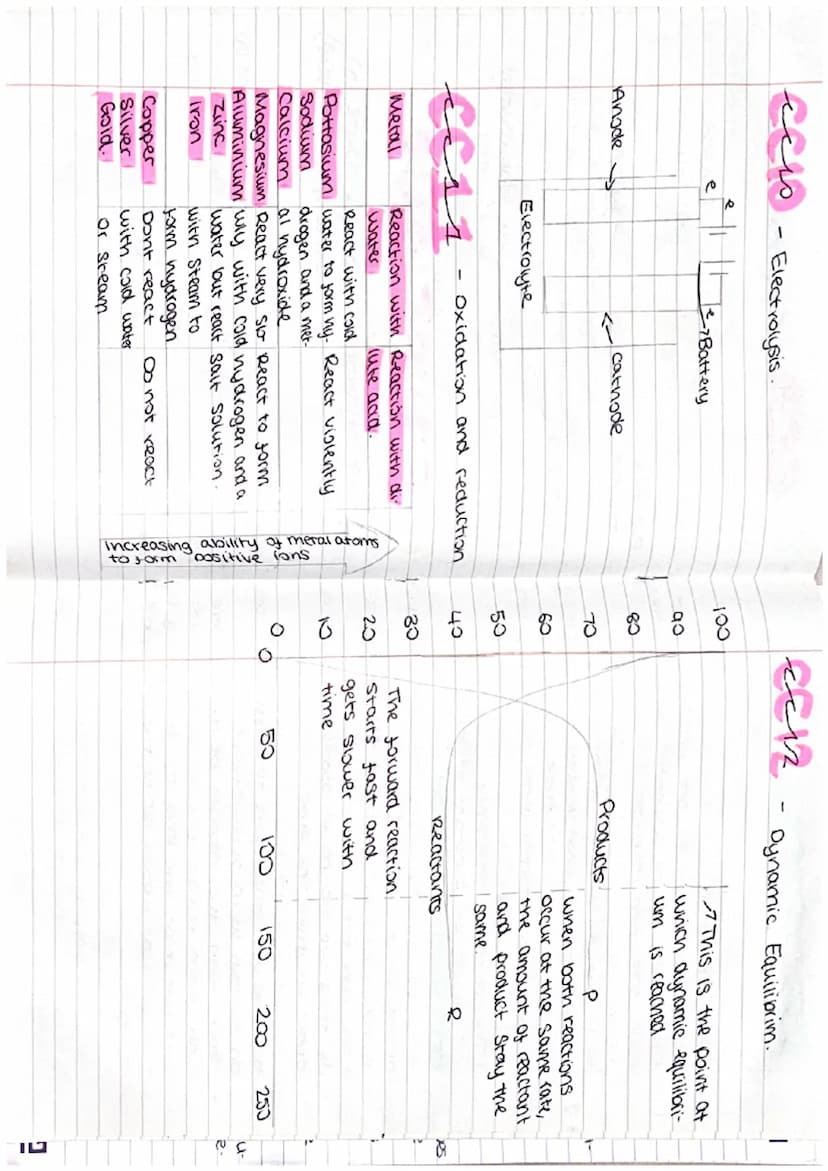 CC10 - Electrolysis.
e
e
e
→Battery
Anode →
← Cathode
Electrolyte
CC11 - Oxidation and reduction
Metal
Reaction with
water
Reaction with di-
lute acid.
Pottasium
Sodium
Calcium
React with cold
water to form hy-
drogen and a met-
al hydroxide
React violently
Magnesium
Aluminium
Zinc
Iron
React very slo
wly with cold
water but react
with steam to
form hydrogen
React to form
hydrogen and a
salt solution.
Copper
Silver
Gold.
Dont react
with cold water
or steam
Do not react
Increasing ability of metal atoms
to form positive ions
CC12 - Dynamic Equilibrim.
100
90
80
70
60
50
40
30
20
10
0
0
50
100
150
200
250
↗This is the point at
which dynamic equilibri-
um is reached
Products
P
when both reactions
occur at the same rate,
the amount of reactant
and product stay the
same.
Reactants
R
The forward reaction
starts fast and
gets slower with
time